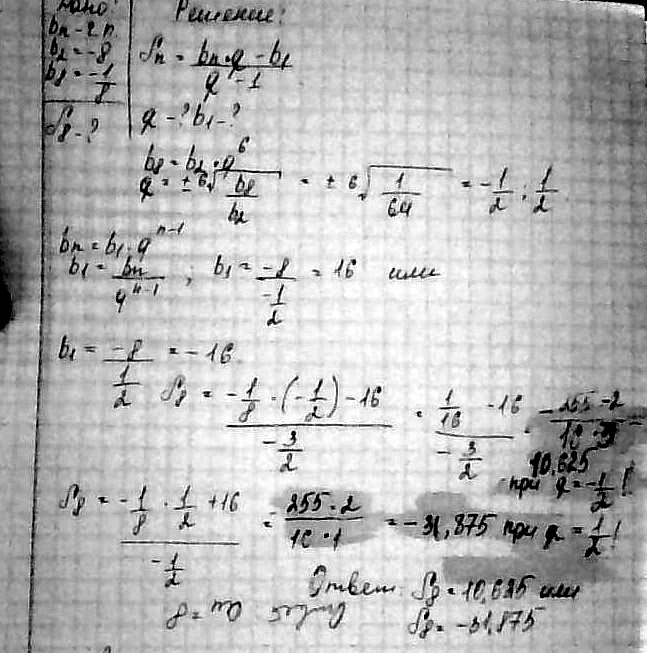 Дано:
bn - г.п.
b2 = -8
b8 = -1/8
S8 - ?
Решение:
Sn = (bn·q - b1)/(q - 1)
q - ? b1 - ?
b8 = b2 · q^6
q = ± 6√(b8/b2) = ± 6√(1/64) = -1/2 ; 1/2
bn = b1 · q^(n-1)
b1 = bn/q^(n-1) ; b1 = -8/(-1/2) = 16 или
b1 = -8/(1/2) = -16.
S8 = (-1/8 · (-1/2) - 16)/(-3/2) = (1/16 - 16)/(-3/2) = (-255 · 2)/(16 · 3) =
10,625
при q = -1/2 !
S8 = (-1/8 · 1/2 + 16)/(-1/2) = (255 · 2)/(16 · 1) = -31,875 при q = 1/2 !
Ответ: S8 = 10,625 или
S8 = -31,875